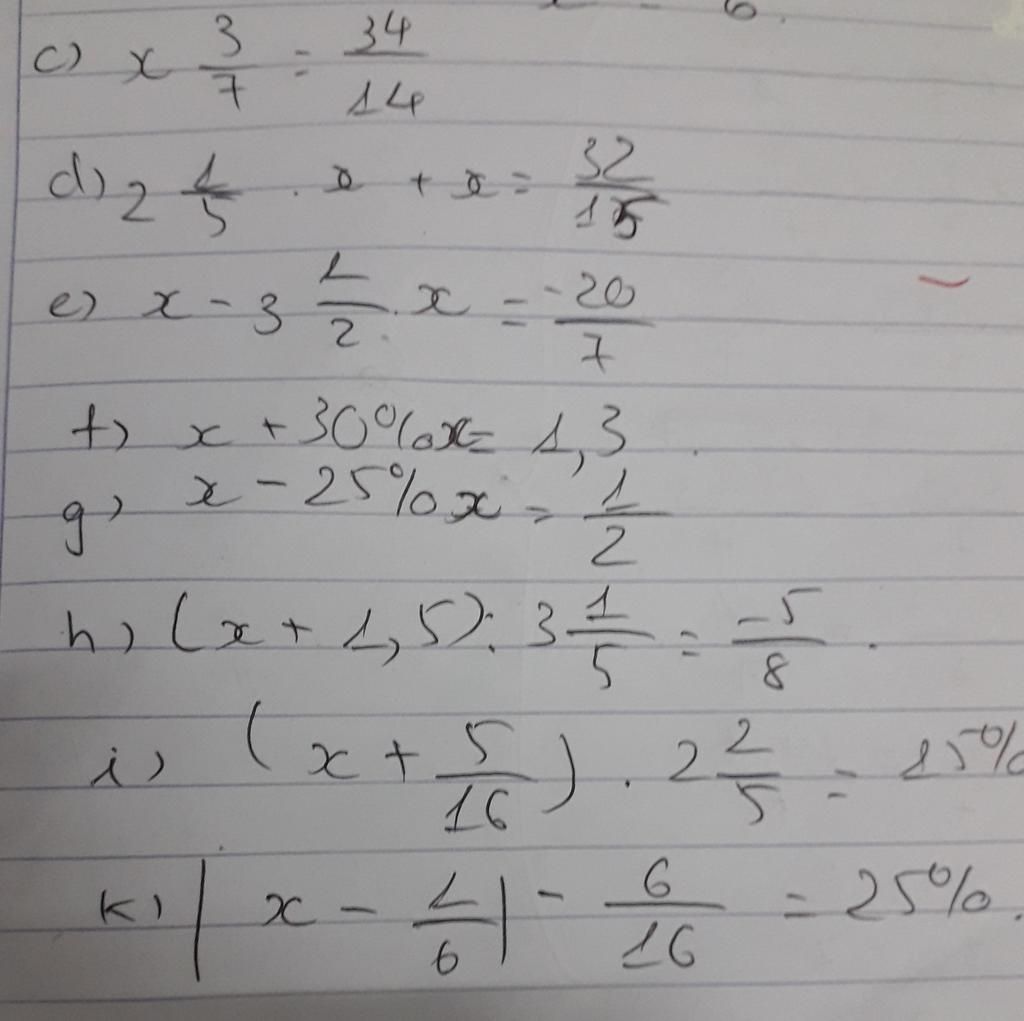 6.
c) x 3/7 = 34/14
d) 2 1/5 . x + x = 32/15
e) x - 3 1/2 . x = -20/7
f) x + 30%x = 1,3
g) x - 25%x = 1/2
h) (x + 1,5) : 3 1/5 = -5/8
i) (x + 5/16) . 2 2/5 = 15%
k) |x - 1/6| - 6/16 = 25%.